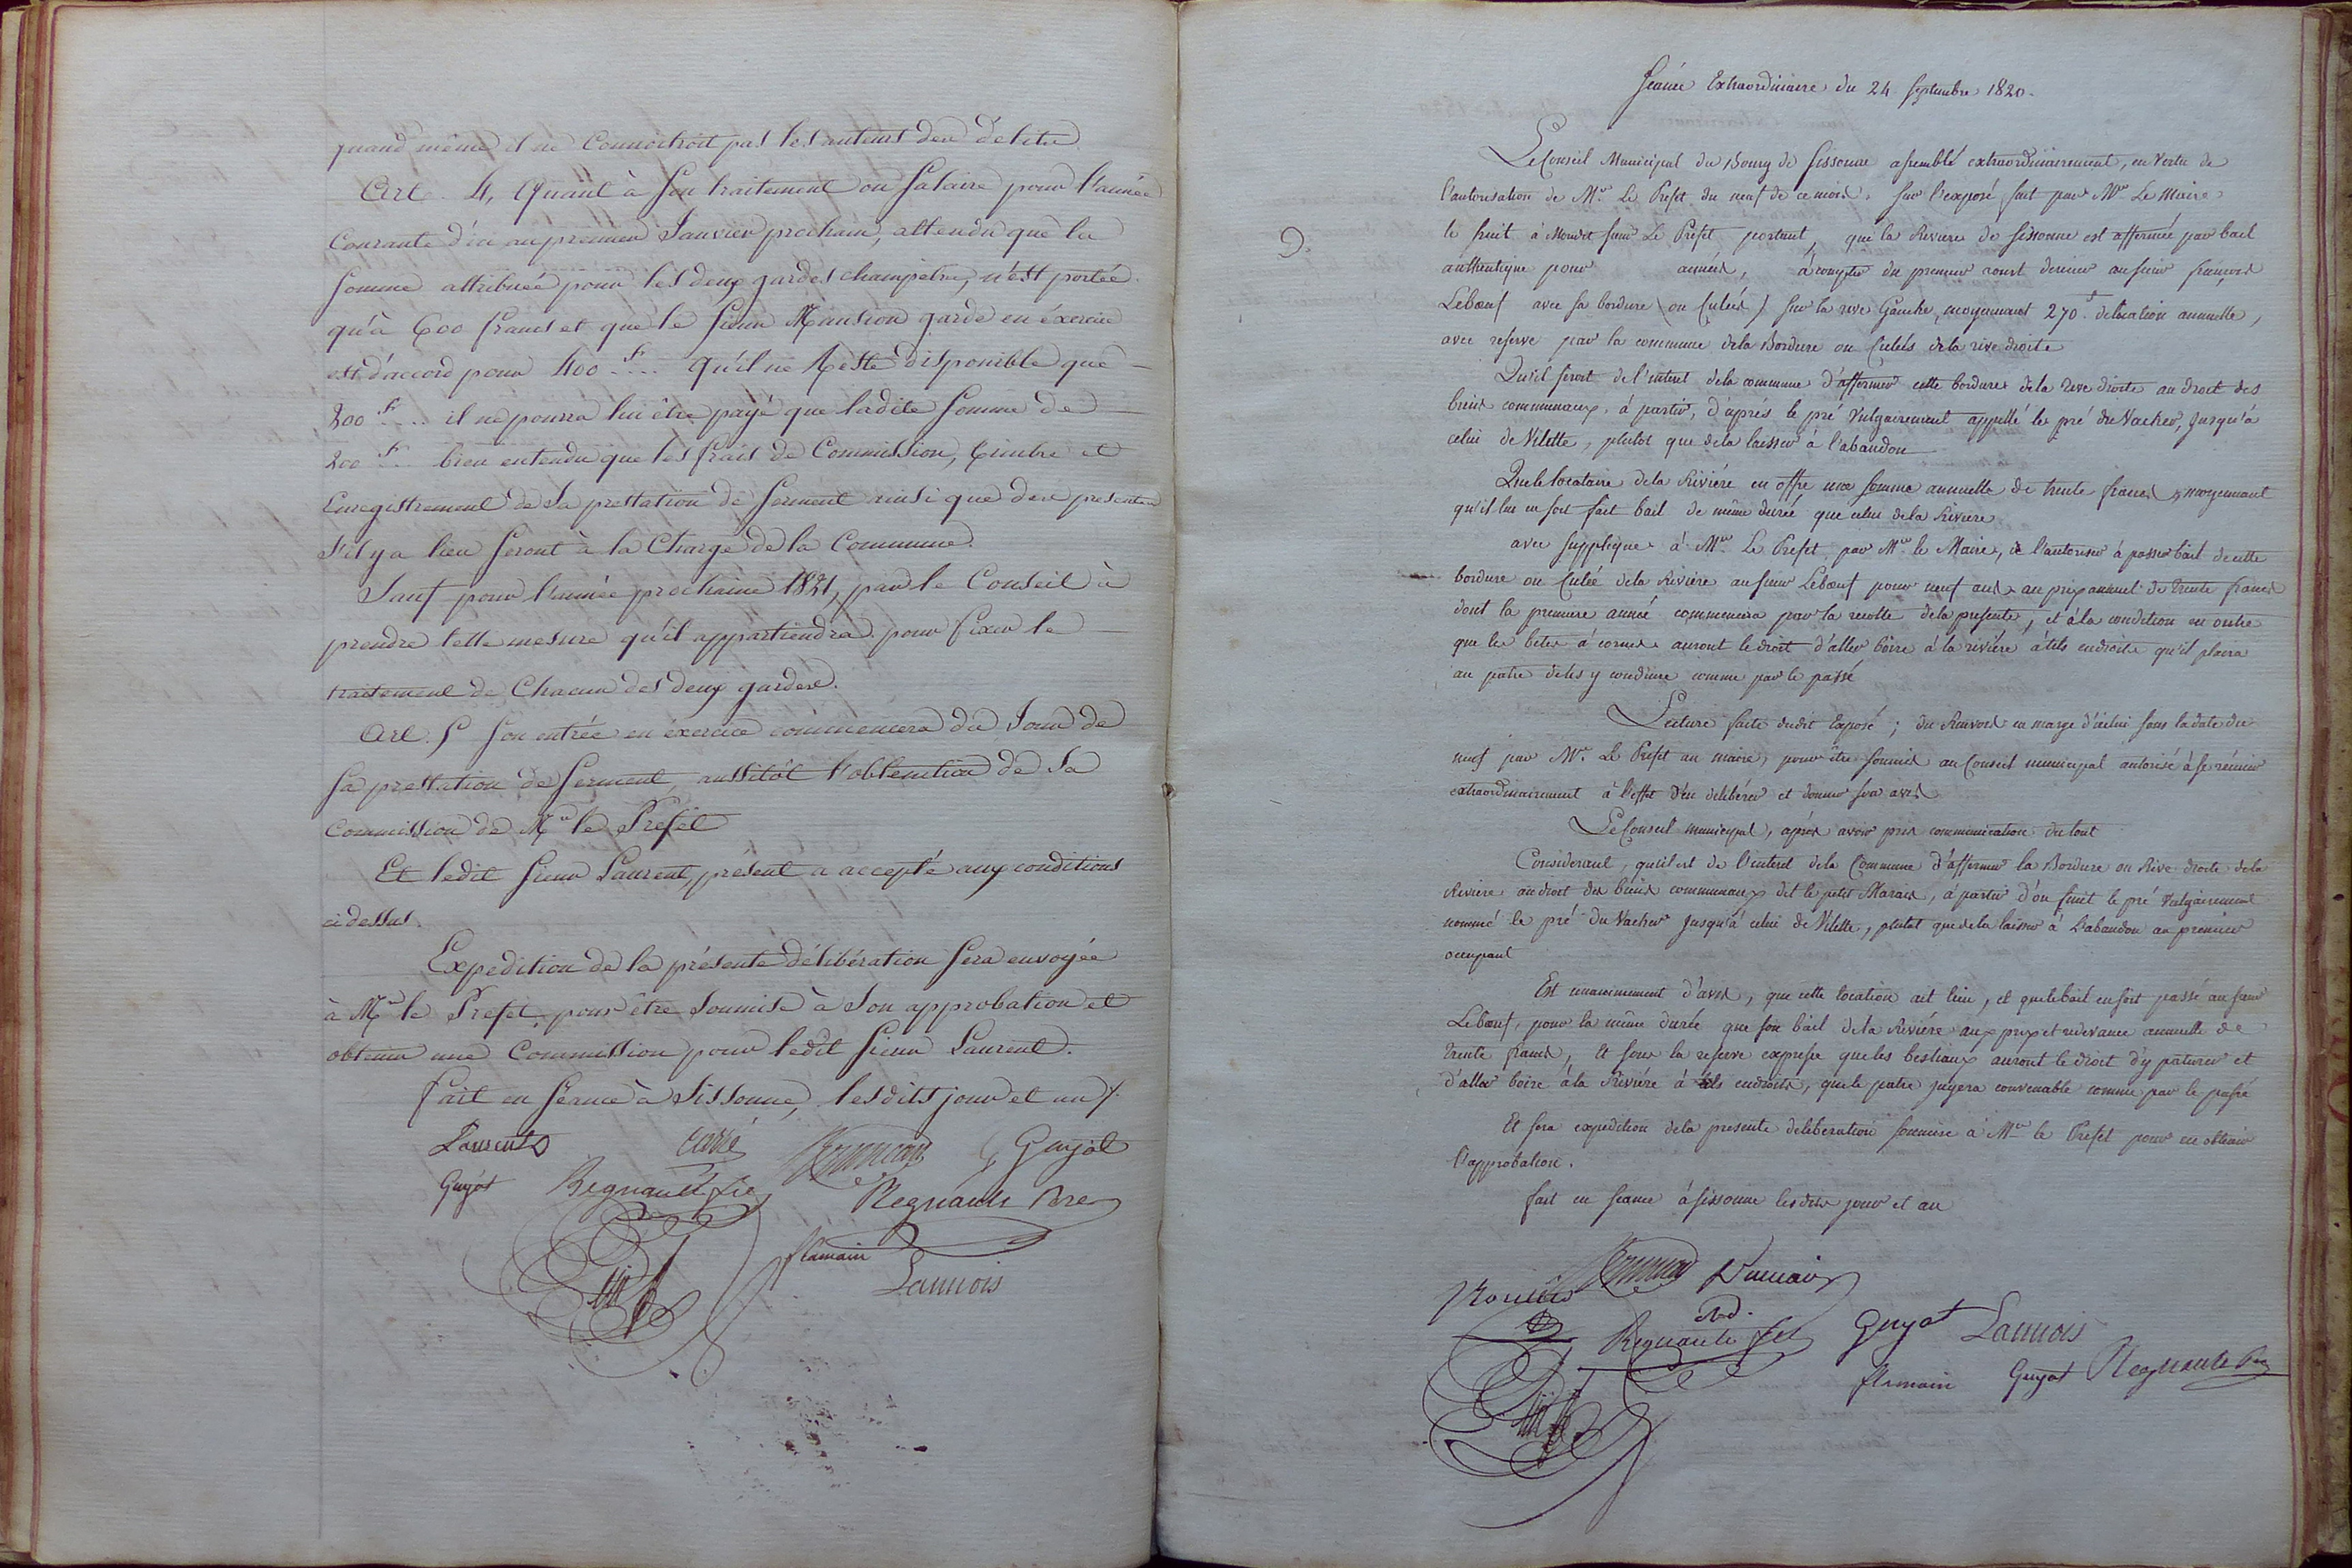 quand même il ne Connoitroit pas les auteurs des delits
Art. 4, Quant à Son traitement ou Salaire pour l'année
Courante d'ici au premier Janvier prochain, attendu que la
Somme attribuée pour les deux gardes champetre, n'est portée
qu'à 600 francs et que le Sieur Mansion garde en éxercice
est d'accord pour 400 fr.... Qu'il ne Reste disponible que
200 fr.... il ne pourra lui être payé que ladite Somme de
200 fr... bien entendu que les frais de Commission, timbre et
Enregistrement de Sa prestation de Serment ainsi que des presentes
S'il y a lieu Seront à la Charge de la Commune.
Sauf pour l'année prochaine 1821, par le Conseil à
prendre telle mesure qu'il appartiendra pour fixer le
traitement de Chacun des deux gardes.
Art. 5 Son entrée en éxercice commencera du Jour de
Sa prestation de Serment, aussitôt l'obtention de Sa
Commission de Mr. le Préfet
Et ledit Sieur Laurent, présent a accepté aux conditions
ci dessus.
Expedition de la présente délibération Sera envoyée
à Mr. le Préfet, pour être Soumise à Son approbation et
obtenir une Commission pour ledit Sieur Laurent.
fait en Séance à Sissonne, lesdits jour et an
Laurent Carré Guyot
Guyot Regnault fils Regnault Pre
flamain
Lannois
Séance Extraordinaire du 24 Septembre 1820.
Le Conseil Municipal du Bourg de Sissonne assemblé extraordinairement, en vertu de
l'autorisation de Mr. Le Prefet du neuf de ce mois. Sur l'exposé fait par Mr. Le Maire
le huit à Mondit Sieur Le Prefet portant, que la Riviere de Sissonne est affermée par bail
D.
authentique pour années, à compter du premier aoust dernier au Sieur françois
Lebœuf avec sa bordure (ou Culées) Sur la rive Gauche, moyennant 270 f. de location annuelle,
avec reserve par la commune de la Bordure ou Culées de la rive droite
Qu'il seroit de l'interet de la commune d'affermer cette bordure de la rive droite au droit des
biens communaux, à partir, d'après le pré Vulgairement appellé le pré du Vacher, Jusqu'à
celui de Vilette, plutot que de la laisser à l'abandon
Que le locataire de la Riviére en offre une somme annuelle de trente francs, moyennant
qu'il lui en soit fait bail de même durée que celui de la Riviere
avec supplique à Mr. Le Prefet par Mr. le Maire, de l'autoriser à passer bail de cette
bordure ou Culée de la Riviére au Sieur Lebœuf pour neuf ans au prix annuel de trente francs
dont la premiere année commencera par la recolte de la presente, et à la condition en outre
que les bêtes à cornes auront le droit d'aller boire à la riviére à tels endroits qu'il plaira
au patre de les y conduire comme par le passé
Lecture faite dudit Exposé; du Renvoi en marge d'icelui sous la date du
neuf par Mr. Le Prefet au maire, pour être soumis au Conseil municipal autorisé à se réunir
extraordinairement à l'effet d'en delibérer et donner son avis
Le Conseil municipal, aprés avoir pris communication du tout
Considerant, qu'il est de l'interet de la Commune d'affermer la Bordure ou Rive droite de la
Riviere au droit des biens communaux dit le petit Marais, à partir d'où finit le pré Vulgairement
nommé le pré du Vacher Jusqu'à celui de Vilette, plutot que de la laisser à l'abandon au premier
occupant
Est unanimement d'avis, que cette location ait lieu, et que le bail en soit passé au Sieur
Lebœuf, pour la même durée que son bail de la Riviére aux prix et redevance annuelle de
trente francs, Et sous la reserve expresse que les bestiaux auront le droit d'y pâturer et
d'aller boire à la Riviére à tels endroits, que le patre jugera convenable comme par le passé
Et sera expedition de la presente deliberation soumise à Mr. le Prefet pour en obtenir
l'approbation.
fait en seance à Sissonne lesdits jour et an
Regnault fils Guyot Lannois
flamain Guyot Regnault Pre